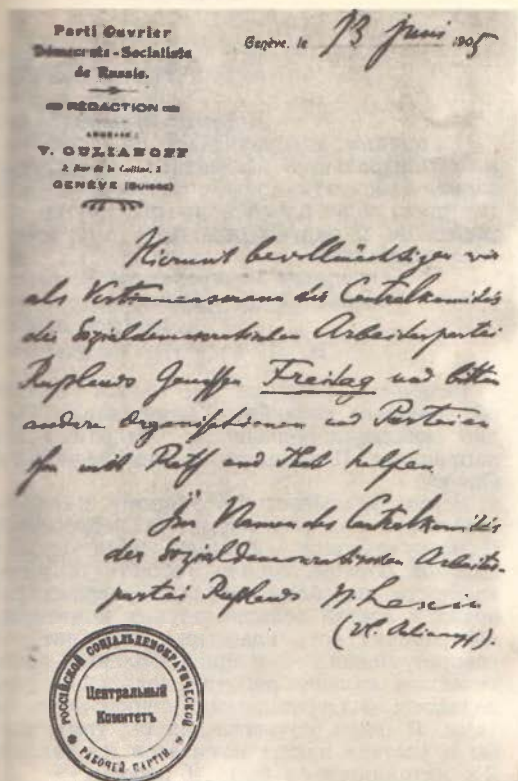 Parti Ouvrier
Démocrate-Socialiste
de Russie.
RÉDACTION
ADRESSE:
V. OULIANOFF
3, Rue de la Colline, 3
GENÈVE (Suisse)
Genève, le 13 juni 1905
Hiermit bevollmächtigen wir
als Vertrauensmann des Centralkomités
der Sozialdemocratischen Arbeiterpartei
Rußlands Genossen Freitag und bitten
andere Organisationen und Parteien
ihm mit Rath und That helfen
Im Namen des Centralkomités
der Sozialdemocratischen Arbeiter-
partei Rußlands N. Lenin
(Vl. Oulianoff).
РОССІЙСКОЙ СОЦІАЛЬДЕМОКРАТИЧЕСКОЙ
РАБОЧЕЙ ПАРТІИ
Центральный
Комитетъ